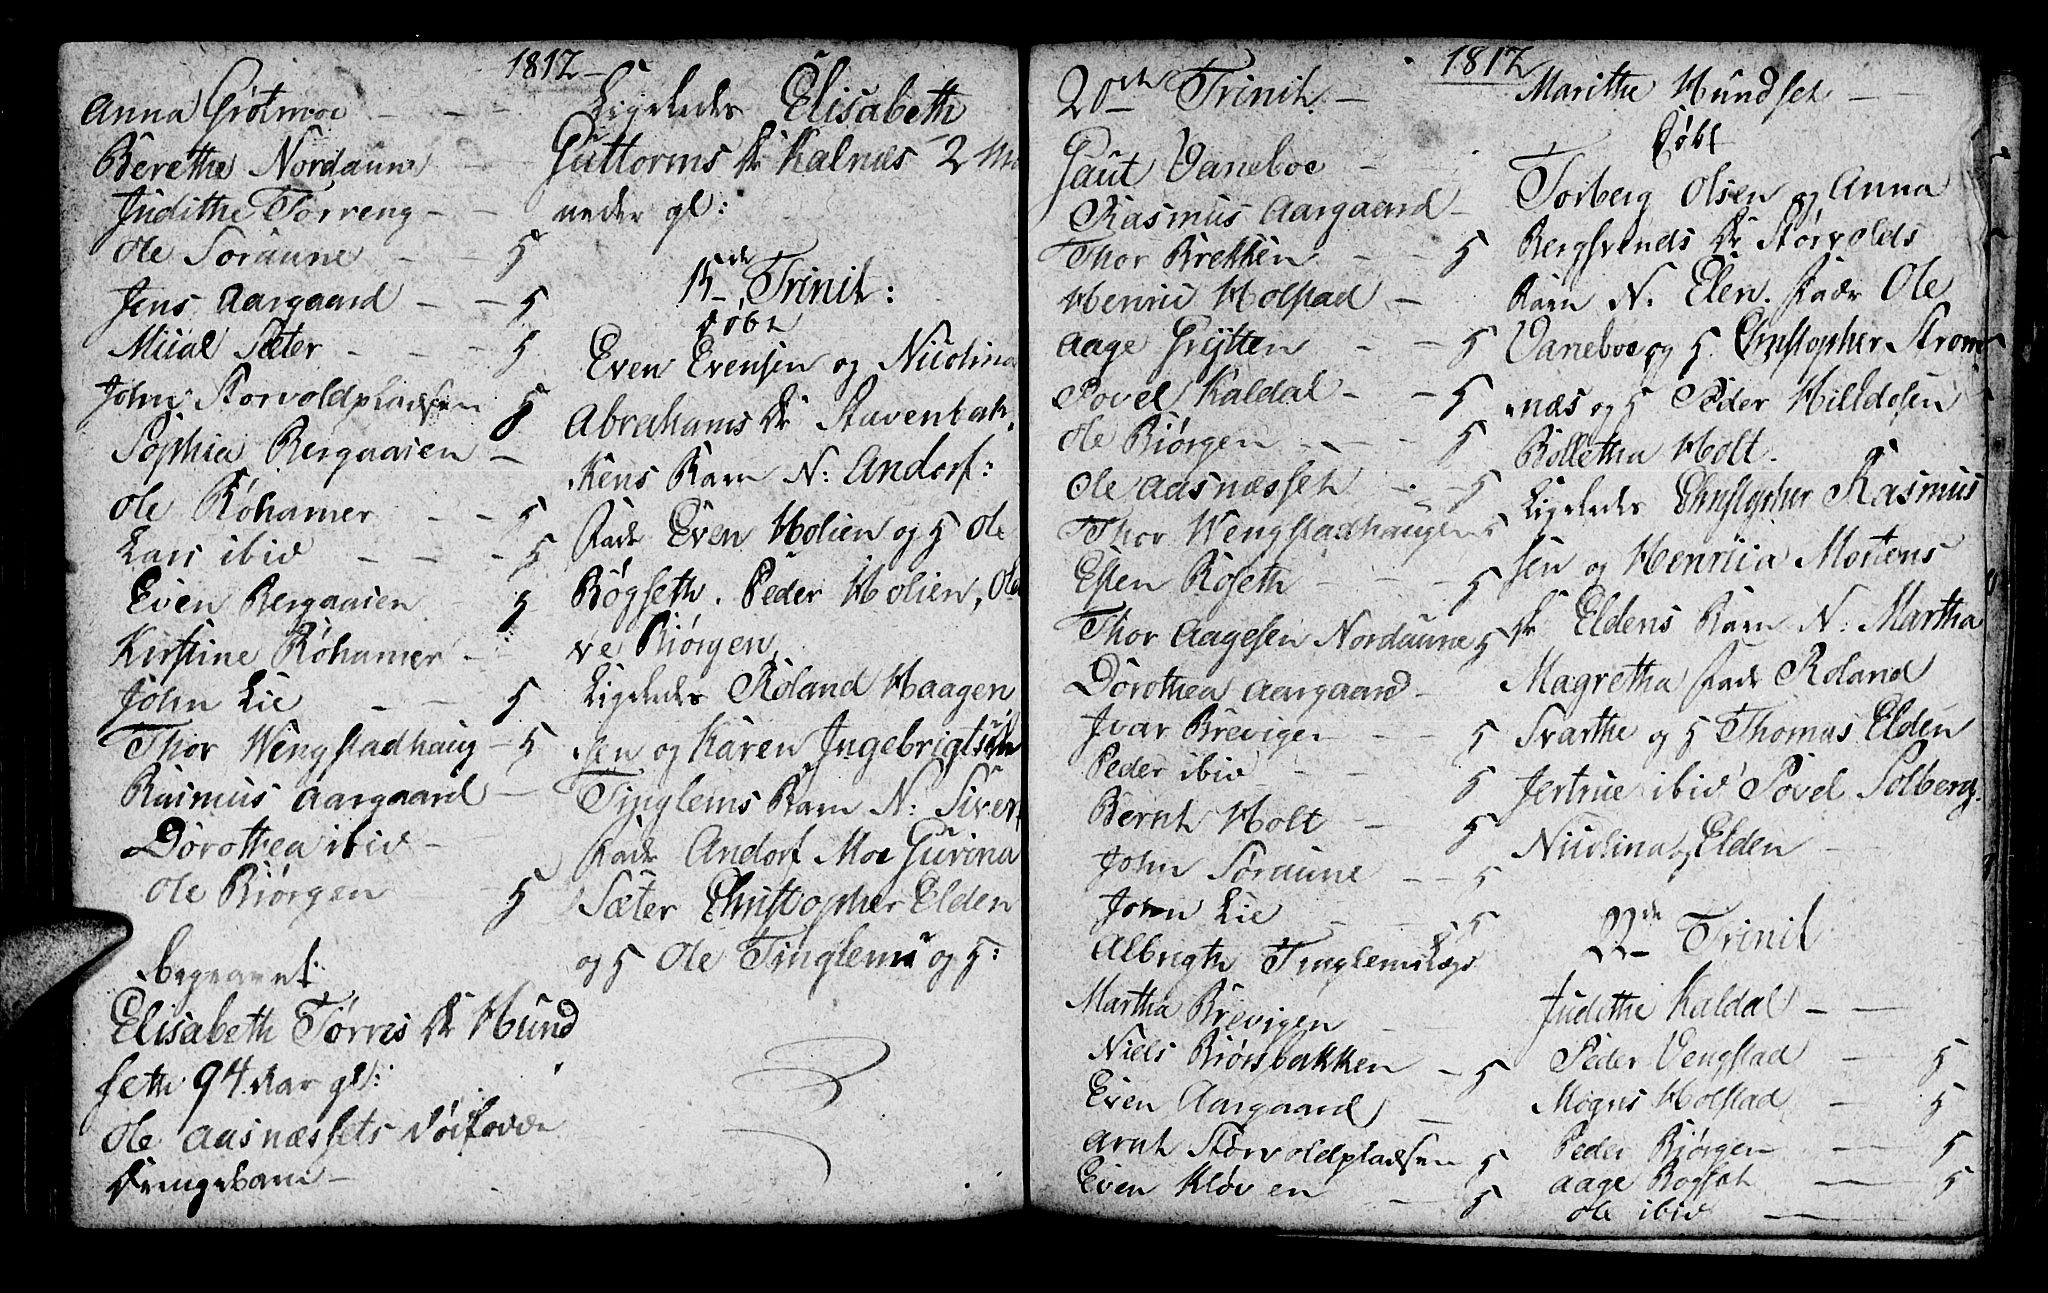 1812
Anna Grötmoe
Berethe Nordaune
Judithe Tørreng
Ole Søraune 5
Jens Aargaard 5
Mical Sæter 5
John Størvoldpladsen 5
Sophia Bergaaien
Ole Röhamer 5
Lars ibid 5
Even Bergaaien 5
Kirstine Röhamer
John Lie 5
Thor Wengstadhaug 5
Rasmus Aargaard
Dorothea ibid
Ole Biörgen 5
begravet
Elisabeth Tørris Dr Hund
seth 94 Aar gl:
Ole Aasnæssets
Drengebarn
Ligeledes Elisabeth
Guttorms Dr Kalnæs 2 Ma
neder gl:
15de Trinit:
døbt
Even Evensen og Nicolina
Abrahams Dr Stavenbak
kens Barn N: Andorf:
Fadr Even Holien og 5 Ole
Bøgseth. Peder Holien, Ole
ve Biörgen
Ligeledes Roland Haagen
sen og Karen Ingebrigtsdr
Tinglems Barn N: Siver
Fadr Andorf Moe Gurina
Sæter Christopher Elden
og 5 Ole Tinglem og 5:
1812
20de Trinit.
Gaut Vaneboe
Rasmus Aargaard
Thor Brekken 5
Henric Holstad
Aage Grytten 5
Povel Kaldal 5
Ole Biörgen 5
Ole Aasnæsset 5
Thor Wengstadhaugen 5
Esten Roseth 5
Thor Aagesen Nordaune 5
Dorothea Aargaard
Ivar Brevigen 5
Peder ibid 5
Bernt Holt 5
John Søraune 5
John Lie 5
Albrigth Tinglem 5
Martha Brevigen
Niels Biörsbakken 5
Even Aargaard
Arnt Størvoldpladsen 5
Even Kløven 5
Marithe Hundset
Døbt
Torberg Olsen og Anna
Bergsvends Dr Størvolds
Barn N. Elen. Fadr Ole
Vaneboe og 5 Christopher Strom
næs og 5 Peder Hilldesen
Bolletha Holt.
Ligeledes Christopher Rasmus
sen og Henricia Mortens
Dr Eldens Barn N: Martha
Magretha Fadr Roland
Svarthe og 5 Thomas Elden
Jertrue ibid Povel Solberg
Nicolina Elden
22de Trinit
Judithe Kaldal
Peder Vengstad 5
Mogns Holstad 5
Peder Biörgen 5
Aage Bogset 5
Ole ibid